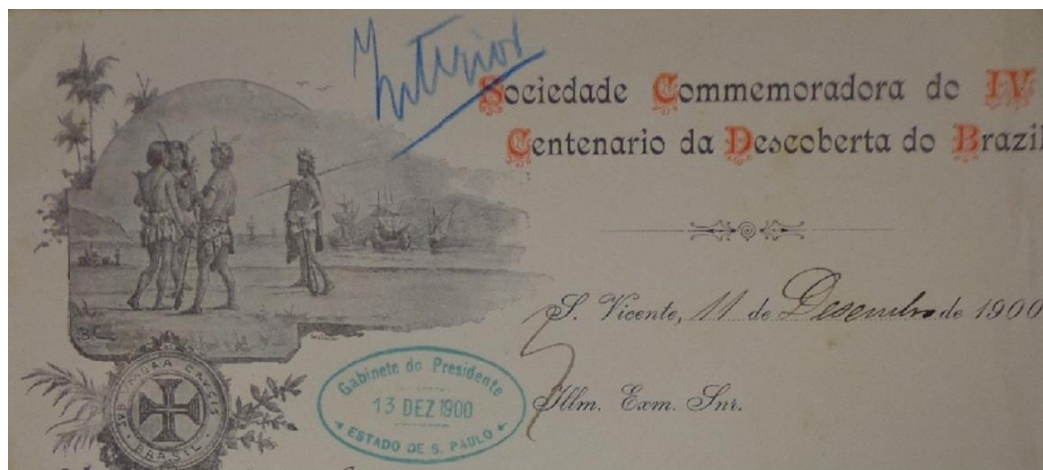 Interior
Sociedade Commemoradora do IV
Centenario da Descoberta do Brazil
S. Vicente, 11 de Desembro de 1900
Gabinete do Presidente
13 DEZ 1900
ESTADO DE S. PAULO
Illm. Exm. Snr.
BRASIL